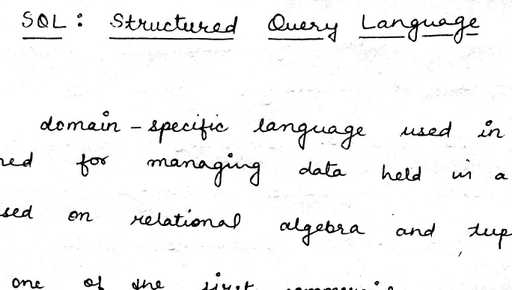 SQL: Structured Query Language
domain-specific language used in
ned for managing data held in a
sed on relational algebra and tup
one of the first